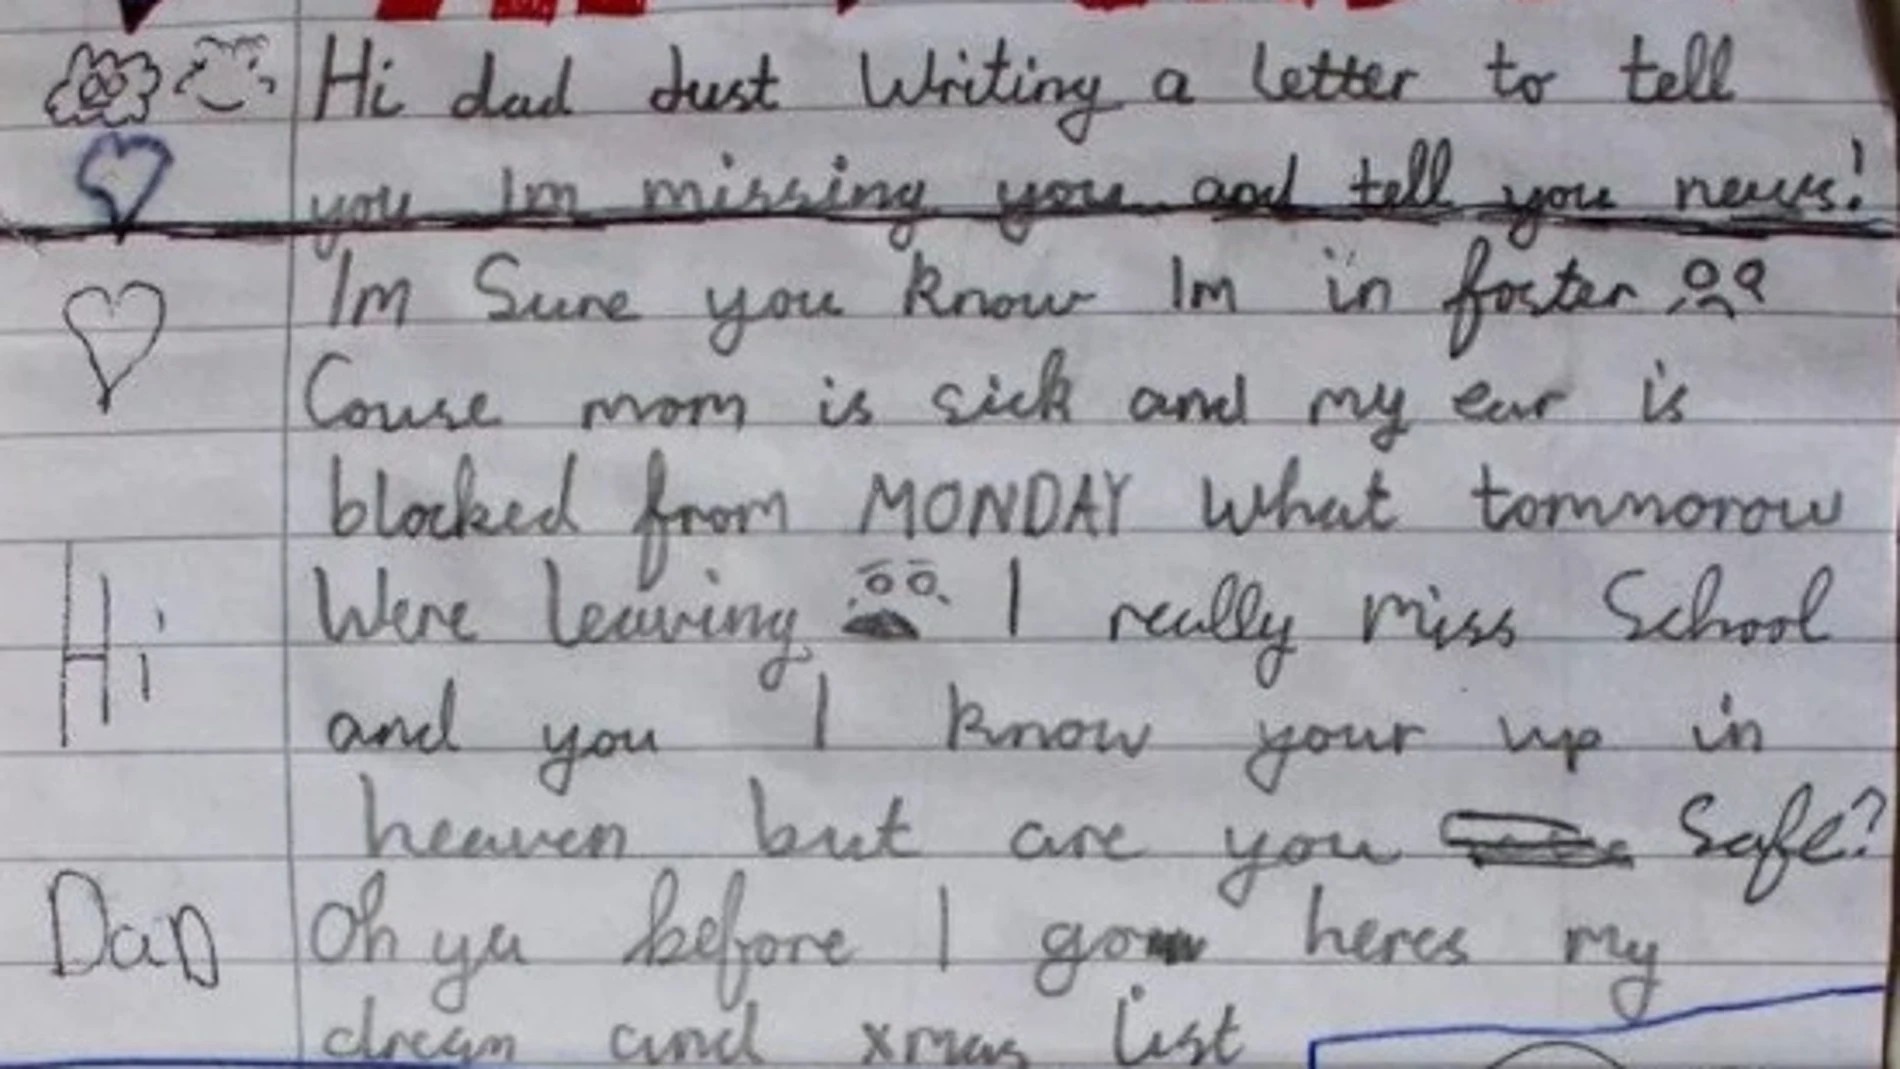 Hi dad Just Writing a letter to tell
you Im missing you and tell you news!
Im Sure you know Im in foster
Couse mom is sick and my ear is
blocked from MONDAY What tommorow
Hi
Were leaving I really miss School
and you I know your up in
heaven but are you Safe?
Dad
Oh ya before I go heres my
dream and xmas list